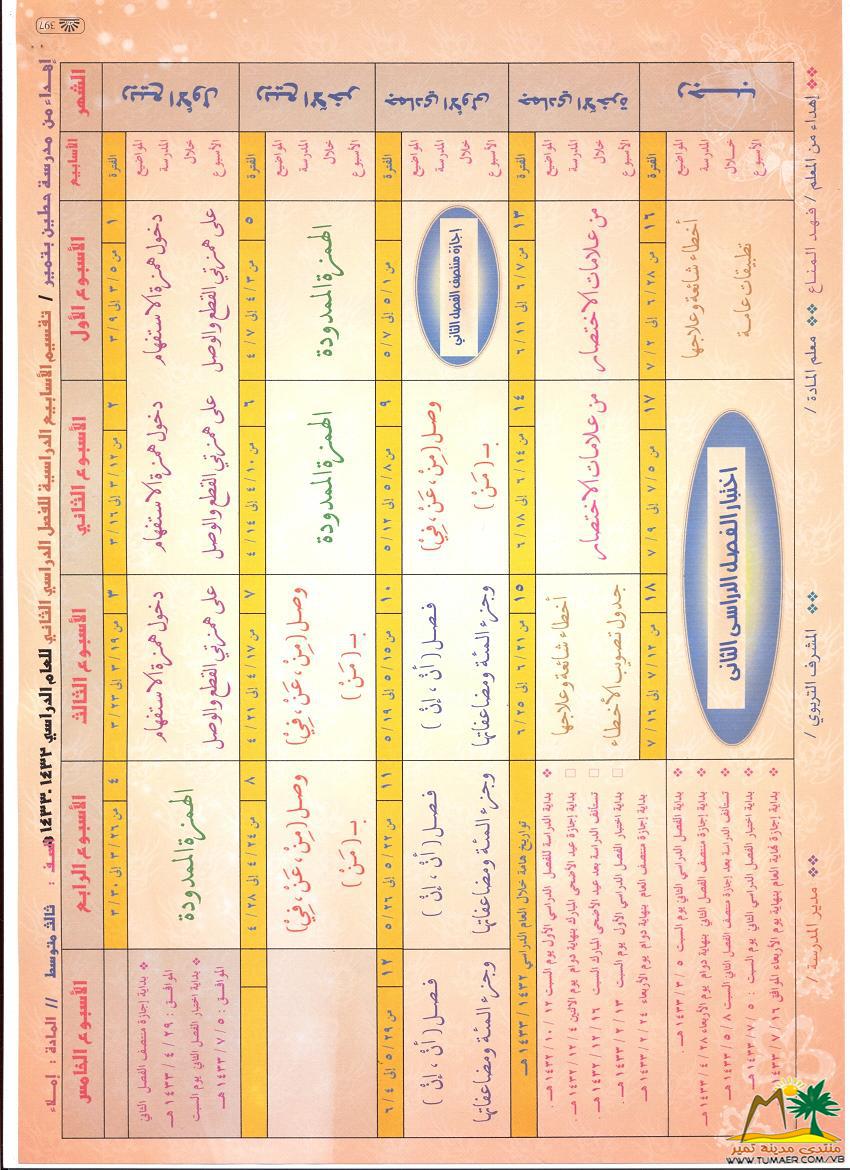 إهداء من مدرسة حطين بتمير / تقسيم الأسابيع الدراسية للفصل الدراسي الثاني للعام الدراسي ١٤٣٢-١٤٣٣ : ثالث متوسط // المادة : إملاء
397
الشهر
الأسابيع
الأسبوع الأول
الأسبوع الثاني
الأسبوع الثالث
الأسبوع الرابع
الأسبوع الخامس
ربيع الأول
الفترة
١
من ٣/٥ إلى ٣/٩
٢
من ٣/١٢ إلى ٣/١٦
٣
من ٣/١٩ إلى ٣/٢٣
٤
من ٣/٢٦ إلى ٣/٣٠
المواضيع
المدرسة
خلال
الأسبوع
دخول همزة الاستفهام
على همزتي القطع والوصل
دخول همزة الاستفهام
على همزتي القطع والوصل
دخول همزة الاستفهام
على همزتي القطع والوصل
الهمزة الممدودة
❖ بداية إجازة منتصف الفصل الثاني
الموافق : ٢٩ / ٤ / ١٤٣٣ هـ
❖ بداية اختبار الفصل الثاني يوم السبت
الموافق : ٥ / ٧ / ١٤٣٣ هـ
ربيع الآخر
الفترة
٥
من ٤/٣ إلى ٤/٧
٦
من ٤/١٠ إلى ٤/١٤
٧
من ٤/١٧ إلى ٤/٢١
٨
من ٤/٢٤ إلى ٤/٢٨
المواضيع
المدرسة
خلال
الأسبوع
الهمزة الممدودة
الهمزة الممدودة
وصل (مِنْ ، عَنْ ، فِيْ)
بـ (مَنْ)
وصل (مِنْ ، عَنْ ، فِيْ)
بـ (مَنْ)
جمادى الأولى
الفترة
من ٥/١ إلى ٥/٧
٩
من ٥/٨ إلى ٥/١٢
١٠
من ٥/١٥ إلى ٥/١٩
١١
من ٥/٢٢ إلى ٥/٢٦
١٢
من ٥/٢٩ إلى ٦/٤
المواضيع
المدرسة
خلال
الأسبوع
إجازة منتصف الفصل الثاني
وصل (مِنْ ، عَنْ ، فِيْ)
بـ (مَنْ)
فصل (أنْ ، إنْ)
وجزء المئة ومضاعفاتها
فصل (أنْ ، إنْ)
وجزء المئة ومضاعفاتها
فصل (أنْ ، إنْ)
وجزء المئة ومضاعفاتها
جمادى الآخرة
الفترة
١٣
من ٦/٧ إلى ٦/١١
١٤
من ٦/١٤ إلى ٦/١٨
١٥
من ٦/٢١ إلى ٦/٢٥
تواريخ هامة خلال العام الدراسي ١٤٣٢ / ١٤٣٣ هـ
المواضيع
المدرسة
خلال
الأسبوع
من علامات الاختصار
من علامات الاختصار
أخطاء شائعة وعلاجها
جدول تصويب الأخطاء
❖ بداية الدراسة للفصل الدراسي الأول يوم السبت ١٢ / ١٠ / ١٤٣٢ هـ .
□ بداية إجازة عيد الأضحى المبارك بنهاية دوام يوم الاثنين ٤ / ١٢ / ١٤٣٢ هـ .
□ تستأنف الدراسة بعد عيد الأضحى المبارك السبت ١٦ / ١٢ / ١٤٣٢ هـ .
□ بداية اختبار الفصل الدراسي الأول يوم السبت ١٣ / ٢ / ١٤٣٣ هـ .
بداية إجازة منتصف العام بنهاية دوام يوم الأربعاء ٢٤ / ٢ / ١٤٣٣ هـ .
رجب
الفترة
١٦
من ٦/٢٨ إلى ٧/٢
١٧
من ٧/٥ إلى ٧/٩
١٨
من ٧/١٢ إلى ٧/١٦
المواضيع
المدرسة
خلال
الأسبوع
أخطاء شائعة وعلاجها
تطبيقات عامة
اختبار الفصل الدراسي الثاني
❖ بداية الفصل الدراسي الثاني يوم السبت ٥ / ٣ / ١٤٣٣ هـ .
❖ بداية إجازة منتصف الفصل الثاني بنهاية دوام يوم الأربعاء ٢٨ / ٤ / ١٤٣٣ هـ
❖ تستأنف الدراسة بعد إجازة منتصف الفصل الثاني السبت ٨ / ٥ / ١٤٣٣ هـ
❖ بداية اختبار الفصل الدراسي الثاني يوم السبت : ٥ / ٧ / ١٤٣٣ هـ
❖ بداية إجازة نهاية العام بنهاية دوام يوم الأربعاء الموافق ١٦ / ٧ / ١٤٣٣ هـ
❖ إهداء من المعلم / فهد المناع ❖ معلم المادة / ❖ المشرف التربوي / ❖ مدير المدرسة /
منتدى مدينة تمير
WWW.TUMAER.COM/VB